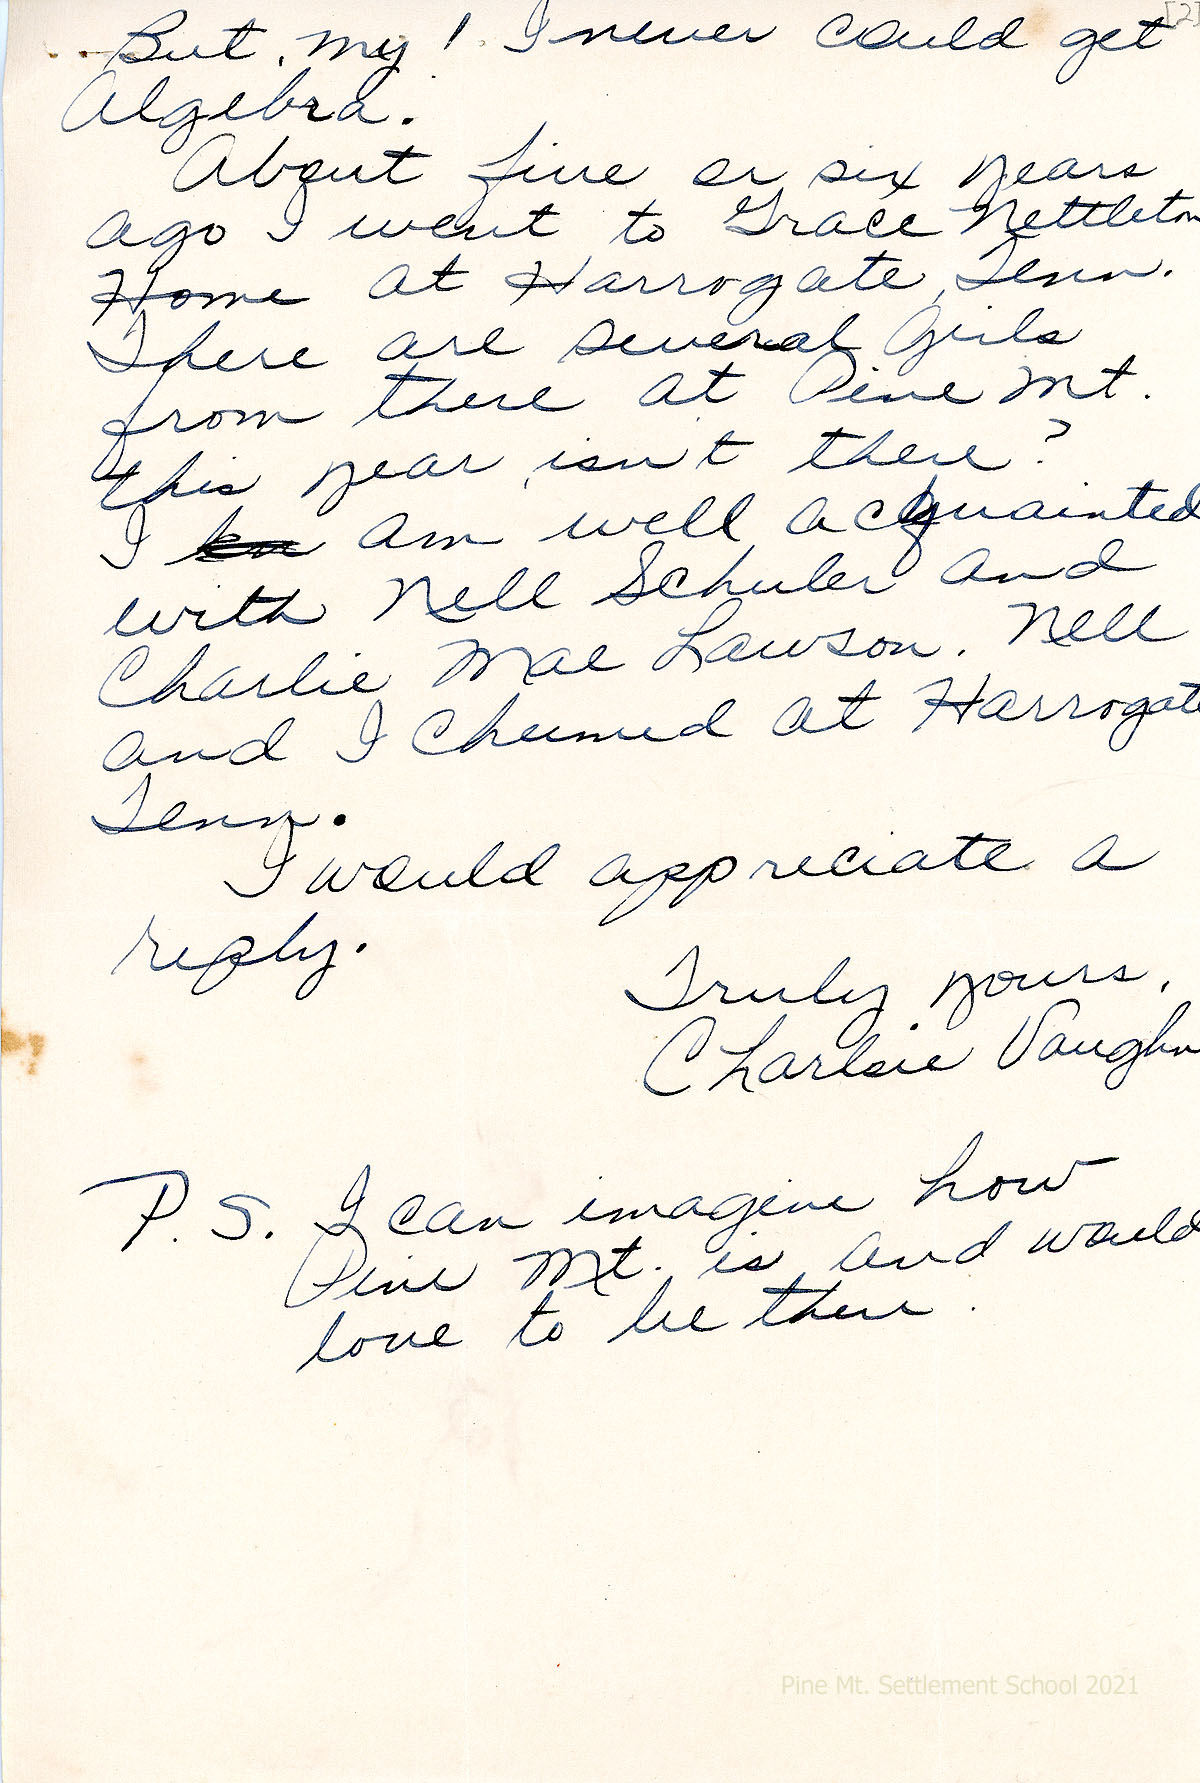 [2]
But, my! I never could get
Algebra.
About five or six years
ago I went to Grace Nettleton
Home at Harrogate, Tenn.
There are several girls
from there at Pine Mt.
this year, isn't there?
I kn am well acquainted
with Nell Schuler and
Charlie Mae Lawson. Nell
and I chumed at Harrogate
Tenn.
I would appreciate a
reply.
Truly yours,
Charlsie Vaughn
P.S. I can imagine how
Pine Mt. is and would
love to be there.
Pine Mt. Settlement School 2021